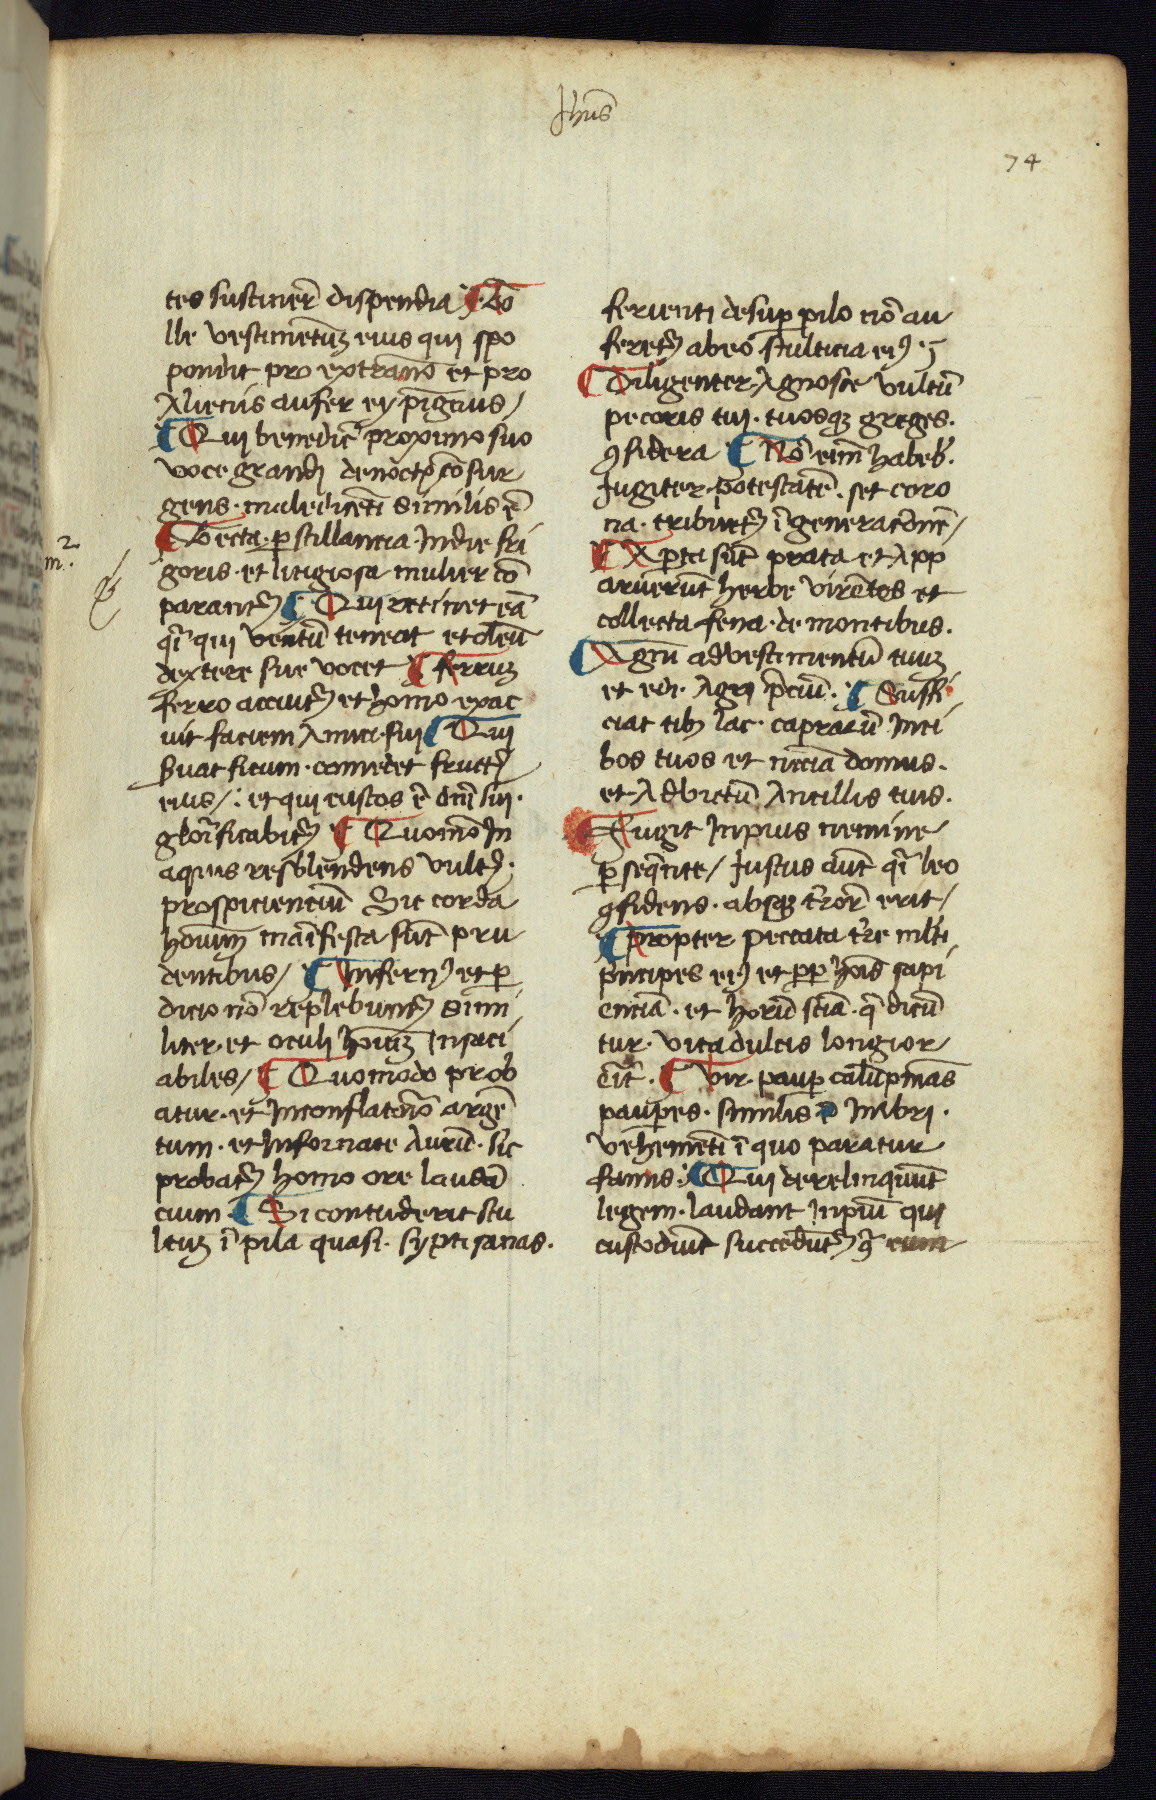 Jhūs
74
tes sustiner̄ dispendia ¶ To
lle vestimētuʒ eius qui spo
pondit pro extraneo et pro
Alienis aufer ei pīgnus /
¶ Qui benedic̄ proximo suo
voce grandi denocte cōsur
gens · maledicēti similis ē
¶ Tecta · ꝑstillantia Jndie fri
m̄ 2.
goris · et litigiosa mulier cō
parant᷑ ¶ Qui retinet eā
qͥ qui ventū teneat et oleū
dextere sue vocet ¶ ferruʒ
ferro accuit᷑ et homo exac
uit faciem Amici · sui ¶ Qui
suat ficum · comedet fruct᷑
eius / : et qui custos ē dn̄i sui ·
glorificabit᷑ ¶ Quomō In
aquis resplendens vult᷑ ·
prospicienciū Sic corda
hominū manifesta sūt pru
dentibus / ¶ Infernꝰ et ꝑ
dicio nō replebunt᷑ simi
liter · et oculi hominū Insaci
abiles / ¶ Quomodo prob
atur · et Inconflatorio argē
tum · et Infornace Aurū · sic
probat᷑ homo ore laudā
cium ¶ Si contuderit stu
ltuʒ ī pila quasi · syptisanas ·
ferienti desuꝑ pilo nō au
feret᷑ abeo stulticia eiꝰ ·
¶ Diligenter · Agnosce vultū
pecoris tui · tuosqʒ greges ·
ꝯsidera ¶ Nō eim̄ habeb̓ ·
Jugiter · potestatē · set coro
na · tribuet᷑ ī generacōnē /
¶ Aperta sūt prata et App
aruerūt herbe virētes et
collecta fena · de montibus ·
¶ Agni advestimentū tuuʒ
et edi · Agri p̄ciū · ¶ Suffi
ciat tibi lac · capraꝝ Inci
bos tuos et nēcia domus ·
et Advictū Ancillis tuis ·
¶ Fugit Inpius nemine
ꝑseq̄nte / Justus aūt qͥ leo
ꝯfidens · absqʒ tͬror̄ erit /
¶ Propter peccata tr̄e mlti
p̄ncipes eiꝰ et ꝓp hōis sapi
enciā · et horū sciā · q̄ dicū
tur · vita dulcis longior
erit · ¶ Vir · pauꝑ calūpnias
pauꝑes · similis ē Inbri ·
vehemēti ī quo paratur
famis : ¶ Qui derelinquūt
legem · laudant Inpiū qui
custodiūt succēdūt᷑ ꝯ̄ eum